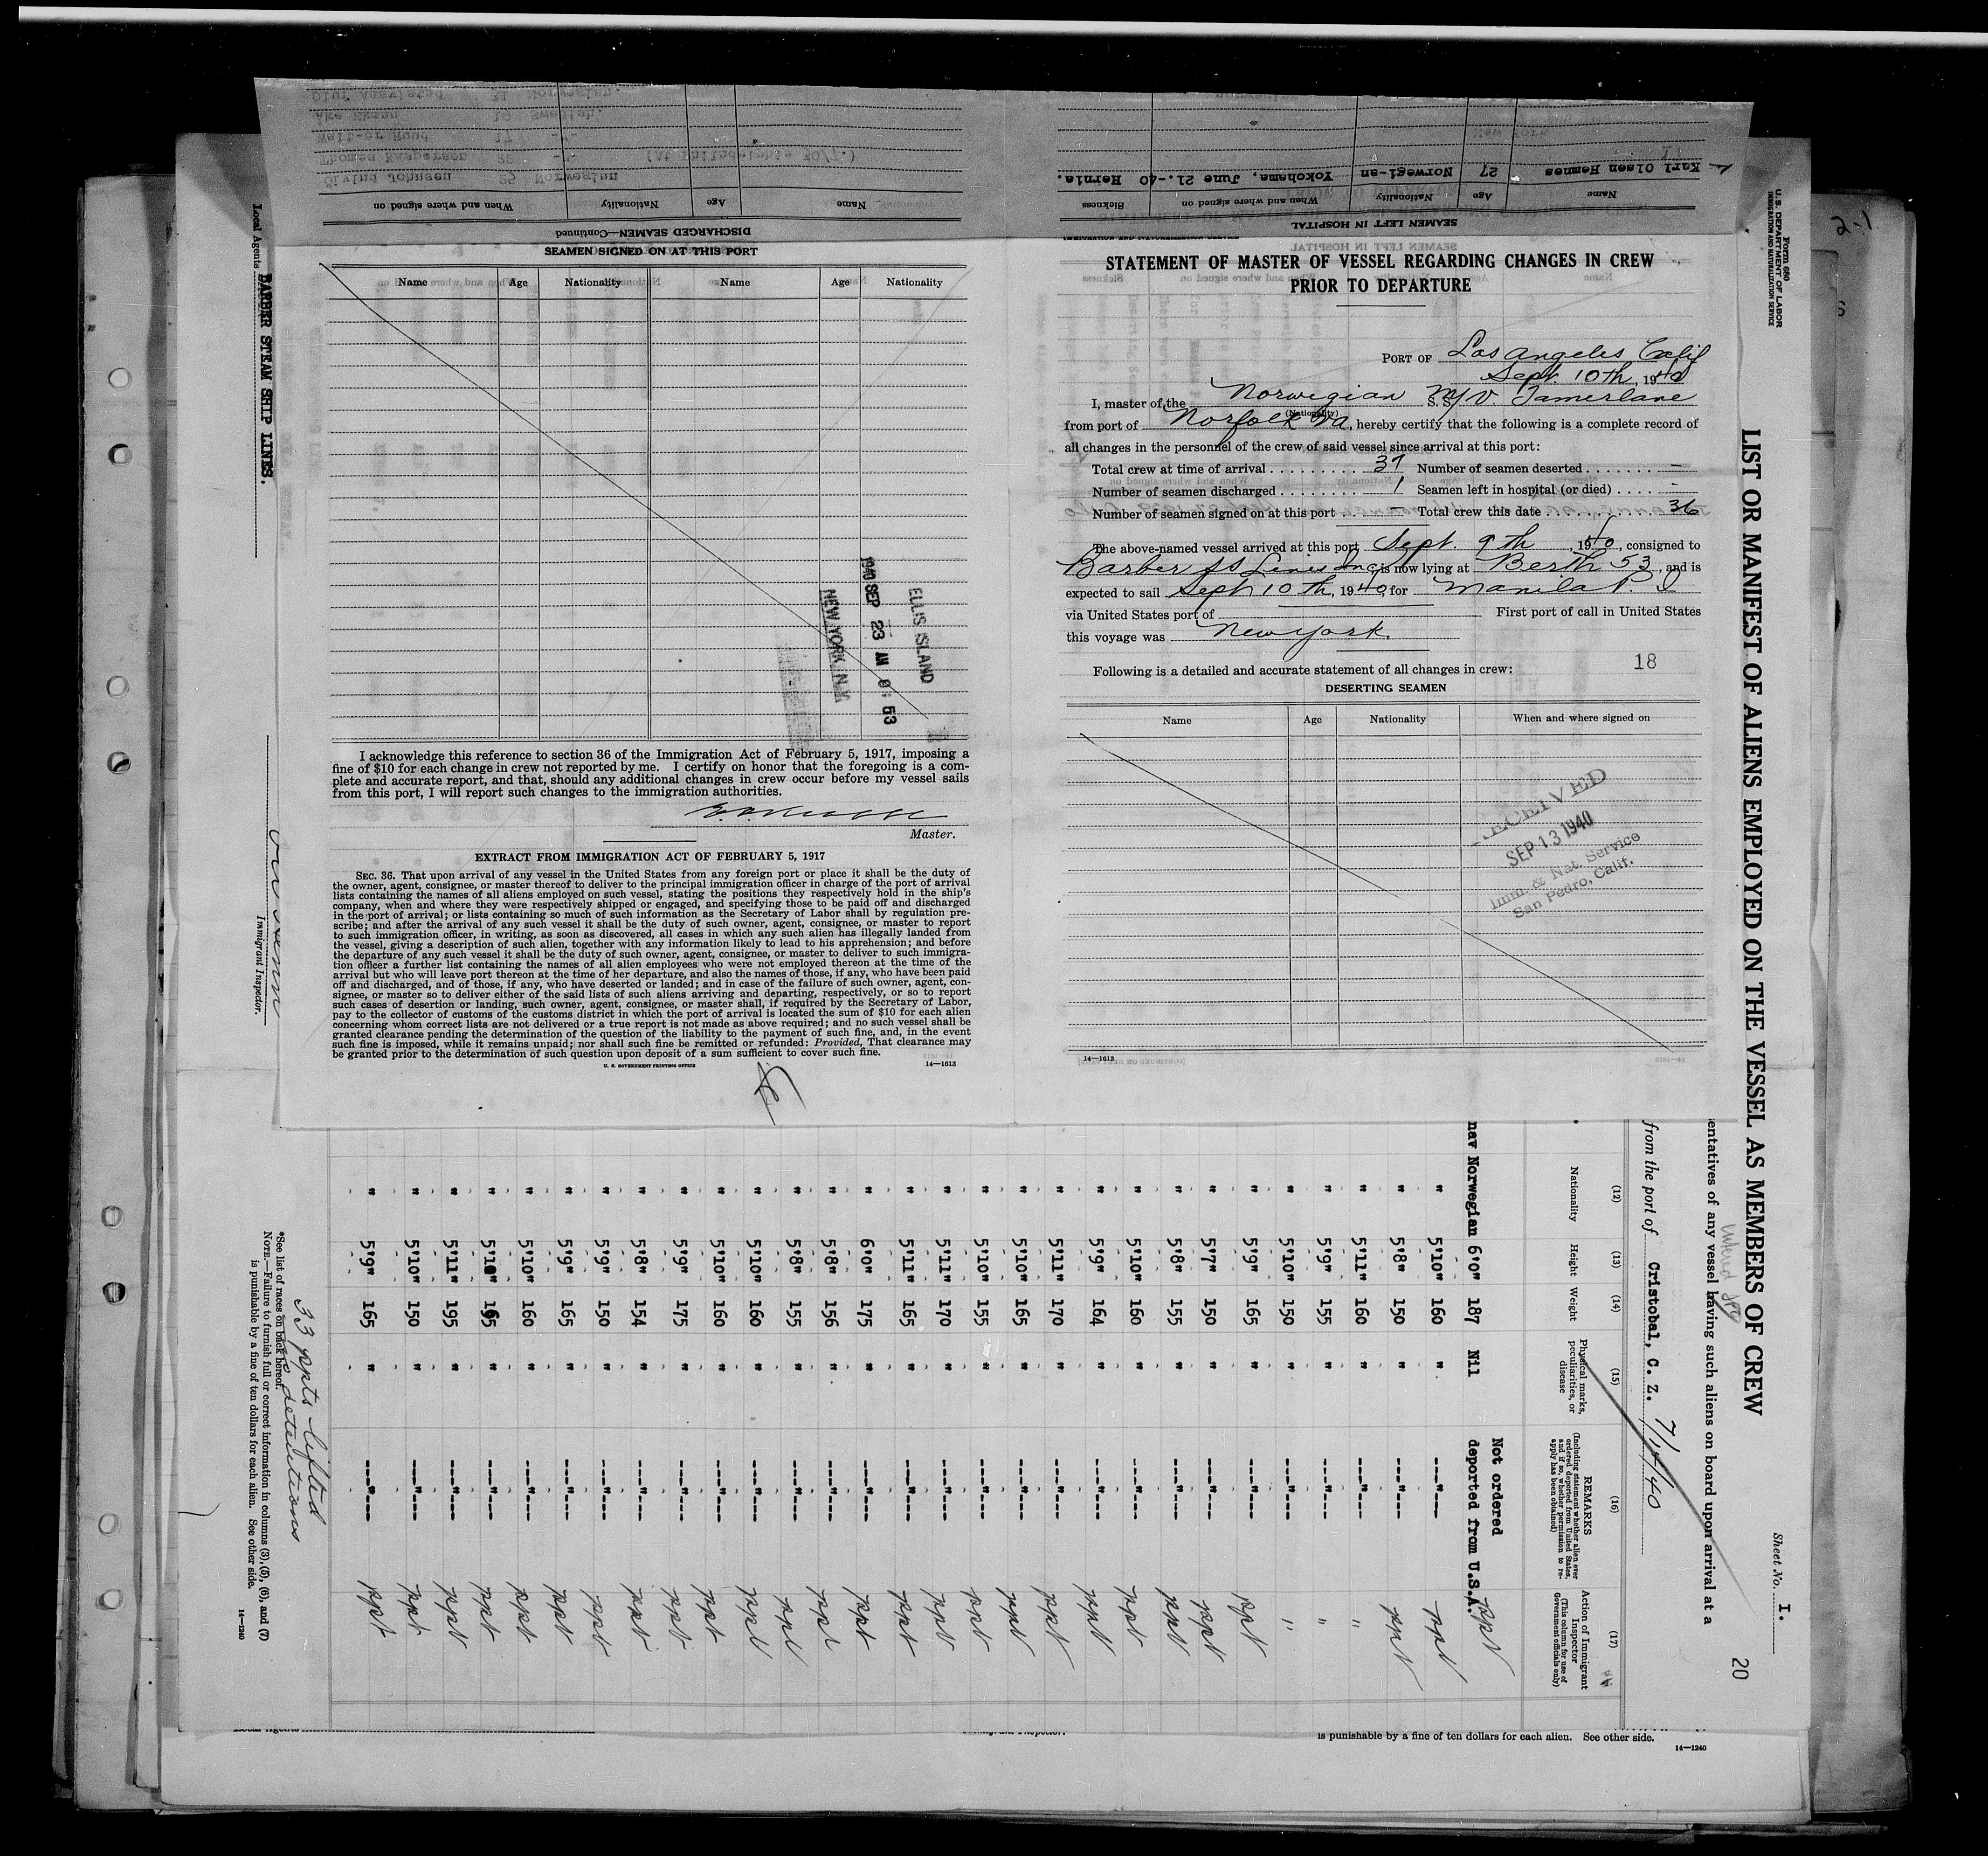 SEAMEN SIGNED ON AT THIS PORT
Name Age Nationality Name Age Nationality
ELLIS ISLAND
1940 SEP 23 AM 8:53
NEW YORK N.Y.
I acknowledge this reference to section 36 of the Immigration Act of February 5, 1917, imposing a
fine of $10 for each change in crew not reported by me. I certify on honor that the foregoing is a com-
plete and accurate report, and that, should any additional changes in crew occur before my vessel sails
from this port, I will report such changes to the immigration authorities.
Master.
EXTRACT FROM IMMIGRATION ACT OF FEBRUARY 5, 1917
SEC. 36. That upon arrival of any vessel in the United States from any foreign port or place it shall be the duty of
the owner, agent, consignee, or master thereof to deliver to the principal immigration officer in charge of the port of arrival
lists containing the names of all aliens employed on such vessel, stating the positions they respectively hold in the ship's
company, when and where they were respectively shipped or engaged, and specifying those to be paid off and discharged
in the port of arrival; or lists containing so much of such information as the Secretary of Labor shall by regulation pre-
scribe; and after the arrival of any such vessel it shall be the duty of such owner, agent, consignee, or master to report
to such immigration officer, in writing, as soon as discovered, all cases in which any such alien has illegally landed from
the vessel, giving a description of such alien, together with any information likely to lead to his apprehension; and before
the departure of any such vessel it shall be the duty of such owner, agent, consignee, or master to deliver to such immigra-
tion officer a further list containing the names of all alien employees who were not employed thereon at the time of the
arrival but who will leave port thereon at the time of her departure, and also the names of those, if any, who have been paid
off and discharged, and of those, if any, who have deserted or landed; and in case of the failure of such owner, agent, con-
signee, or master so to deliver either of the said lists of such aliens arriving and departing, respectively, or so to report
such cases of desertion or landing, such owner, agent, consignee, or master shall, if required by the Secretary of Labor,
pay to the collector of customs of the customs district in which the port of arrival is located the sum of $10 for each alien
concerning whom correct lists are not delivered or a true report is not made as above required; and no such vessel shall be
granted clearance pending the determination of the question of the liability to the payment of such fine, and, in the event
such fine is imposed, while it remains unpaid; nor shall such fine be remitted or refunded: Provided, That clearance may
be granted prior to the determination of such question upon deposit of a sum sufficient to cover such fine.
U. S. GOVERNMENT PRINTING OFFICE 14—1613
STATEMENT OF MASTER OF VESSEL REGARDING CHANGES IN CREW
PRIOR TO DEPARTURE
PORT OF Los Angeles Calif
Sept 10th, 1940
I, master of the Norwegian S.S. M/V. Tamerlane
(Nationality)
from port of Norfolk Va, hereby certify that the following is a complete record of
all changes in the personnel of the crew of said vessel since arrival at this port:
Total crew at time of arrival 37 Number of seamen deserted —
Number of seamen discharged 1 Seamen left in hospital (or died) -
Number of seamen signed on at this port — Total crew this date 36
The above-named vessel arrived at this port Sept. 9th, 1940, consigned to
Barber SS Lines Inc, is now lying at Berth 53, and is
expected to sail Sept 10th, 1940, for Manila P. I
via United States port of First port of call in United States
this voyage was New York.
Following is a detailed and accurate statement of all changes in crew: 18
DESERTING SEAMEN
Name Age Nationality When and where signed on
RECEIVED
SEP 13 1940
Imm. & Nat. Service
San Pedro, Calif.
14—1613
DISCHARGED SEAMEN—Continued
Name Age Nationality When and where signed on
Öivind Johnsen 25 Norwegian
Thomas Kaspersen (At Philadelphia 30/7.)
17
Åke Ekman 19 Swedish.
31 Norwegian.
SEAMEN LEFT IN HOSPITAL
Name Age Nationality When and where signed on Sickness
Karl Olsen Hemnes 27 Norwegi-an Yokohama, June 21.-40 Hernia.
Form 680
U.S. DEPARTMENT OF LABOR
IMMIGRATION AND NATURALIZATION SERVICE
LIST OR MANIFEST OF ALIENS EMPLOYED ON THE VESSEL AS MEMBERS OF CREW
Sheet No. I.
20
2-1
entatives of any vessel having such aliens on board upon arrival at a
from the port of Cristobal, C. Z. 7/15/40
(12) (13) (14) (15) (16) (17)
Nationality
Height
Weight
Physical marks, peculiarities, or disease
REMARKS
(Including statement whether alien ever ordered deported from United States, and if so, whether permission to re-apply has been obtained)
Action of Immigrant Inspector
(This column for use of Government officials only)
Not ordered
nav Norwegian 6'0" 187 Nil deported from U.S.A. ppt
" 5'10" 160 " ---"--- ppt
" 5'8" 150 " ---"--- ppt
" 5'11" 160 " ---"--- "
" 5'9" 155 " ---"--- "
" 5'10" 150 " ---"--- "
" 5'9" 165 " ---"--- ppt
" 5'7" 150 " ---"--- ppt
" 5'8" 155 " ---"--- ppt
" 5'10" 160 " ---"--- ppt
" 5'9" 164 " ---"--- ppt
" 5'11" 170 " ---"--- ppt
" 5'10" 165 " ---"--- ppt
" 5'10" 155 " ---"--- ppt
" 5'11" 170 " ---"--- ppt
" 5'11" 165 " ---"--- ppt
" 6'0" 175 " ---"--- ppt
" 5'8" 156 " ---"--- ppt
" 5'8" 155 " ---"--- ppt
" 5'10" 160 " ---"--- ppt
" 5'10" 160 " ---"--- ppt
" 5'9" 175 " ---"--- ppt
" 5'8" 154 " ---"--- ppt
" 5'9" 150 " ---"--- ppt
" 5'9" 165 " ---"--- ppt
" 5'10" 160 " ---"--- ppt
" 5'10" 165 " ---"--- ppt
" 5'11" 195 " ---"--- ppt
" 5'10" 150 " ---"--- ppt
" 5'9" 165 " ---"--- ppt
33 ppts lifted
no detentions
*See list of races on back hereof.
NOTE.—Failure to furnish full or correct information in columns (3), (5), (6), and (7)
is punishable by a fine of ten dollars for each alien. See other side.
14—1240
Local Agents BARBER STEAM SHIP LINES.
Immigrant Inspector.
Immigrant Inspector.
is punishable by a fine of ten dollars for each alien. See other side.
14—1240